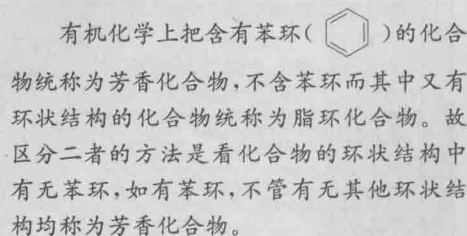 有机化学上把含有苯环()的化合
物统称为芳香化合物,不含苯环而其中又有
环状结构的化合物统称为脂环化合物。故
区分二者的方法是看化合物的环状结构中
有无苯环,如有苯环,不管有无其他环状结
构均称为芳香化合物。